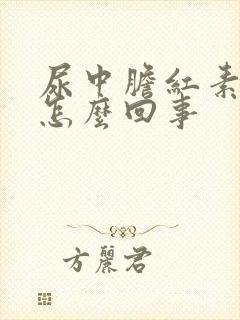 尿中膽紅素
怎麼回事
方麗君